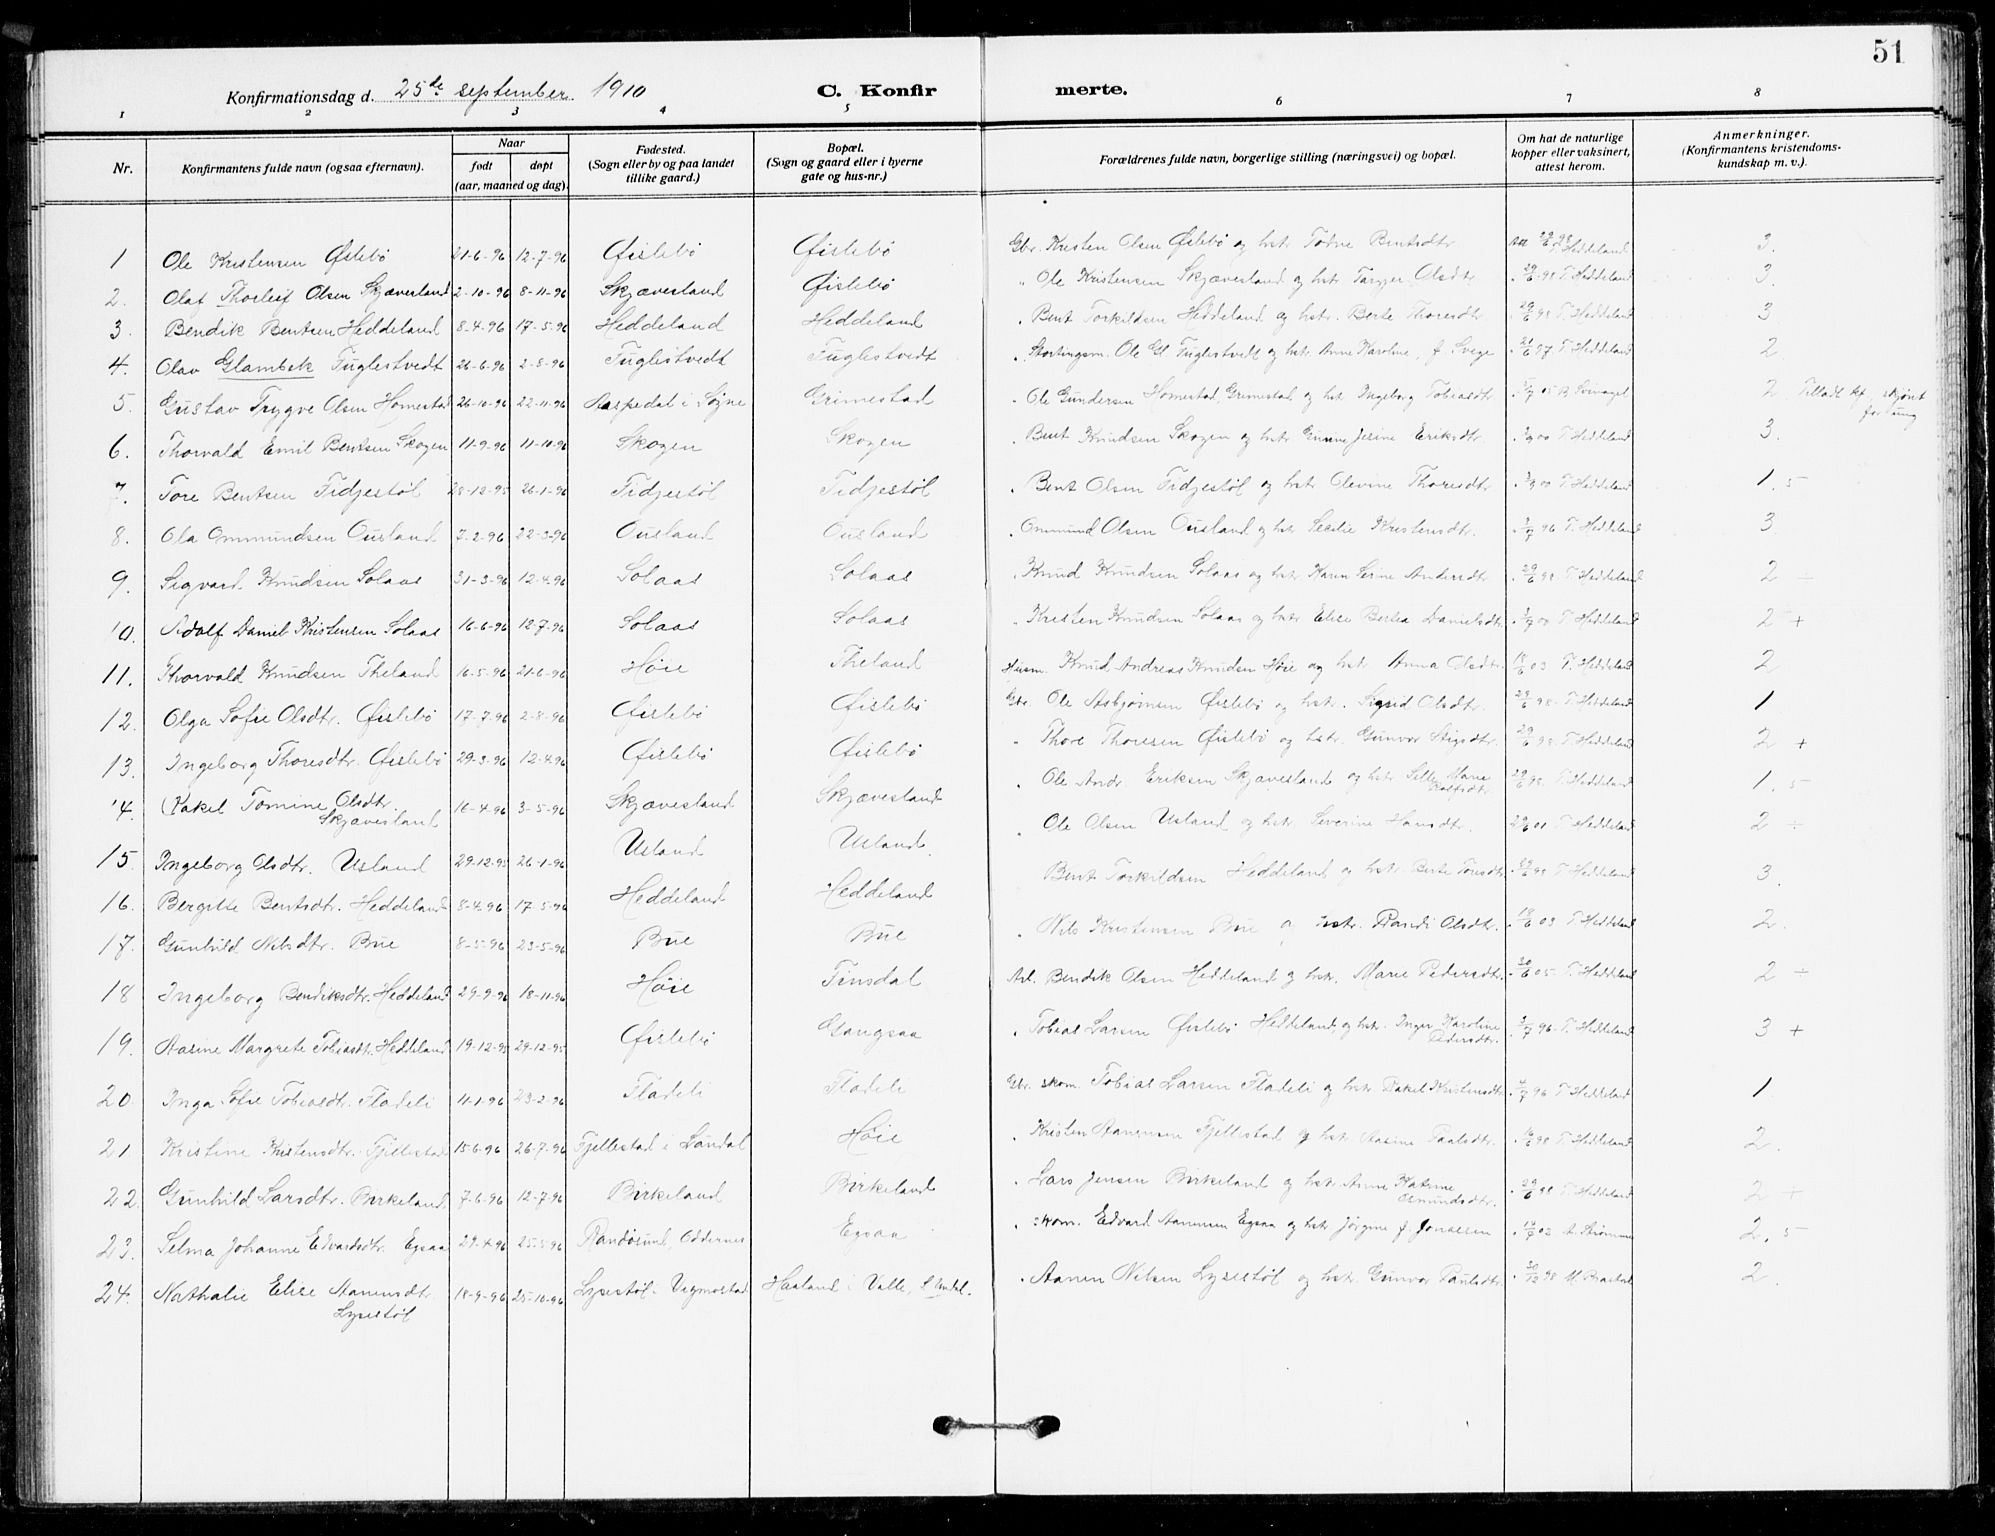 51
Konfirmationsdag d. 25de september 1910 C. Konfirmerte.
1 2 3 4 5 6 7 8
Nr. Konfirmantens fulde navn (ogsaa efternavn). Naar født døpt (aar, maaned og dag). Fødested. (Sogn eller by og paa landet tillike gaard.) Bopæl. (Sogn og gaard eller i byerne gate og hus-nr.) Forældrenes fulde navn, borgerlige stilling (næringsvei) og bopæl. Om hat de naturlige kopper eller vaksinert, attest herom. Anmerkninger. (Konfirmantens kristendomskundskap m. v.).
1 Ole Kristensen Øslebø 21-6-96 12-7-96 Øislebø Øislebø Gbr. Kristen Olsen Øslebø og hstr Tobine Bentsdtr T. Heddeland 3.
2. Olaf Thorleif Olsen Skjævesland 2-10-96 8-11-96 Skjævesland Øislebø " Ole Kristensen Skjævesland og hstr Taryer Olsdtr 29/6 98 T. Heddeland 3.
3. Bendik Bentsen Heddeland 8-4-96 17-5-96 Heddeland Heddeland " Bent Torkildsen Heddeland og hstr. Berte Thoresdtr 29/6 98 T. Heddeland 3
4. Olav Glambek Fuglestvedt 26-6-96 2-8-96 Fuglestvedt Fuglestvedt " Stortingsm. Ole Gl Fuglestvedt og hstr Anne Karoline, f. Svege 21/6 97 T. Heddeland 2
5. Gustav Trygve Olsen Homestad 26-10-96 22-11-96 Aaspedal i Søgne Grimestad " Ole Gundersen Homestad, Grimestad og hstr Ingeborg Tobiasdtr 05 2 Tilladt kf. skjønt for ung
6. Thorvald Emil Bentsen Skogen 11-9-96 11-10-96 Skogen Skogen " Bent Knudsen Skogen og hstr Gunne Jesine Eriksdtr 00 T. Heddeland 3.
7. Tore Bentsen Fidjestøl 28-12-95 26-1-96 Fidjestøl Fidjestøl " Bent Olsen Fidjestøl og hstr Olevine Thoresdtr 00 T. Heddeland 1.5
8. Ola Ommundsen Ousland 2-2-96 22-3-96 Ousland Ousland " Ommund Olsen Ousland og hstr Secilie Kristensdtr. 2/7 96 T. Heddeland 3
9. Sigvard Knudsen Solaas 31-3-96 12-4-96 Solaas Solaas " Knud Knudsen Solaas og hstr Karen Serine Andersdtr 29/6 98 T. Heddeland 2 ÷
10. Adolf Daniel Kristensen Solaas 16-6-96 12-7-96 Solaas Solaas " Kristen Knudsen Solaas og hstr Elise Bertea Danielsdtr 00 T. Heddeland 2 +
11. Thorvald Knudsen Theland 16-5-96 21-6-96 Høie Theland Husm. Knud Andreas Knudsen Høie og hstr Anna Olsdtr 18/6 03 T. Heddeland 2
12. Olga Sofie Olsdtr. Øislebø 17-7-96 2-8-96 Øislebø Øislebø Gbr. Ole Asbjørnsen Øislebø og hstr. Sigrid Olsdtr. 29/6 98 T. Heddeland 1
13. Ingeborg Thoresdtr. Øislebø 29-3-96 12-4-96 Øislebø Øislebø " Thore Thoresen Øislebø og hstr. Gunvor Stigsdtr. 29/6 98 T. Heddeland 2 +
14. Rakel Tomine Olsdtr. Skjævesland 16-4-96 3-5-96 Skjævesland Skjævesland " Ole Andr. Eriksen Skjævesland og hstr Marie 29/6 98 T. Heddeland 1.5
15. Ingeborg Olsdtr. Usland 29-12-95 26-1-96 Usland Usland " Ole Olsen Usland og hstr Severine Hansdtr. 01 T. Heddeland 2 ÷
16. Bergitte Bentsdtr. Heddeland 8-4-96 17-5-96 Heddeland Heddeland Bent Torkildsen Heddeland og hstr. Berte Toresdtr 29/6 98 T. Heddeland 3
17. Gunhild Nilsdtr. Bue 8-5-96 23-5-96 Bue Bue " Nils Kristensen Bue og hstr. Randi Olsdtr. 18/6 03 T. Heddeland 2.
18 Ingeborg Bendiksdtr. Heddeland 29-9-96 18-11-96 Høie Finsdal Arb. Bendik Olsen Heddeland og hstr. Marie Pedersdtr 05 T. Heddeland 2 ÷
19. Aasine Margrete Tobiasdt. Heddeland 19-12-95 29-12-95 Øislebø Gangsaa " Tobias Larsen Øislebø Heddeland og hstr. Inger Karoline Pedersdtr. 2/7 96 T. Heddeland 3 +
20. Inga Sofie Tobiasdtr. Fladeli 11-1-96 23-2-96 Fladeli Fladeli Gbr. skom. Tobias Larsen Fladeli og hstr Rakel Kristensdtr 2/7 96 T. Heddeland 1.
21 Kristine Kristensdtr. Fjellestad 15-6-96 26-7-96 Fjellestad i Løndal Høie " Kristen Aanensen Fjellestad og hstr. Aasine Paalsdtr. 98 T. Heddeland 2.
22. Gunhild Larsdtr. Birkeland 7-6-96 12-7-96 Birkeland Birkeland " Lars Jensen Birkeland og hstr Anne Katrine Osmundsdtr. 29/6 98 T. Heddeland 2 +
23. Selma Johanne Edvardsdtr. Egsaa 29-4-96 25-5-96 Randøsund, Oddernes Egsaa " skom. Edvard Aanensen Egsaa og hstr Jørgine f. Jonassen 02 A. Strømme 2.5
24. Nathalie Elise Aanensdtr. Lysestøl 18-9-96 25-10-96 Lysestøl - Vigmostad Haaland i Valle, S Undal. " Aanen Nilsen Lysestøl og hstr. Gunvor Paulsdtr. 30/12 98 2.